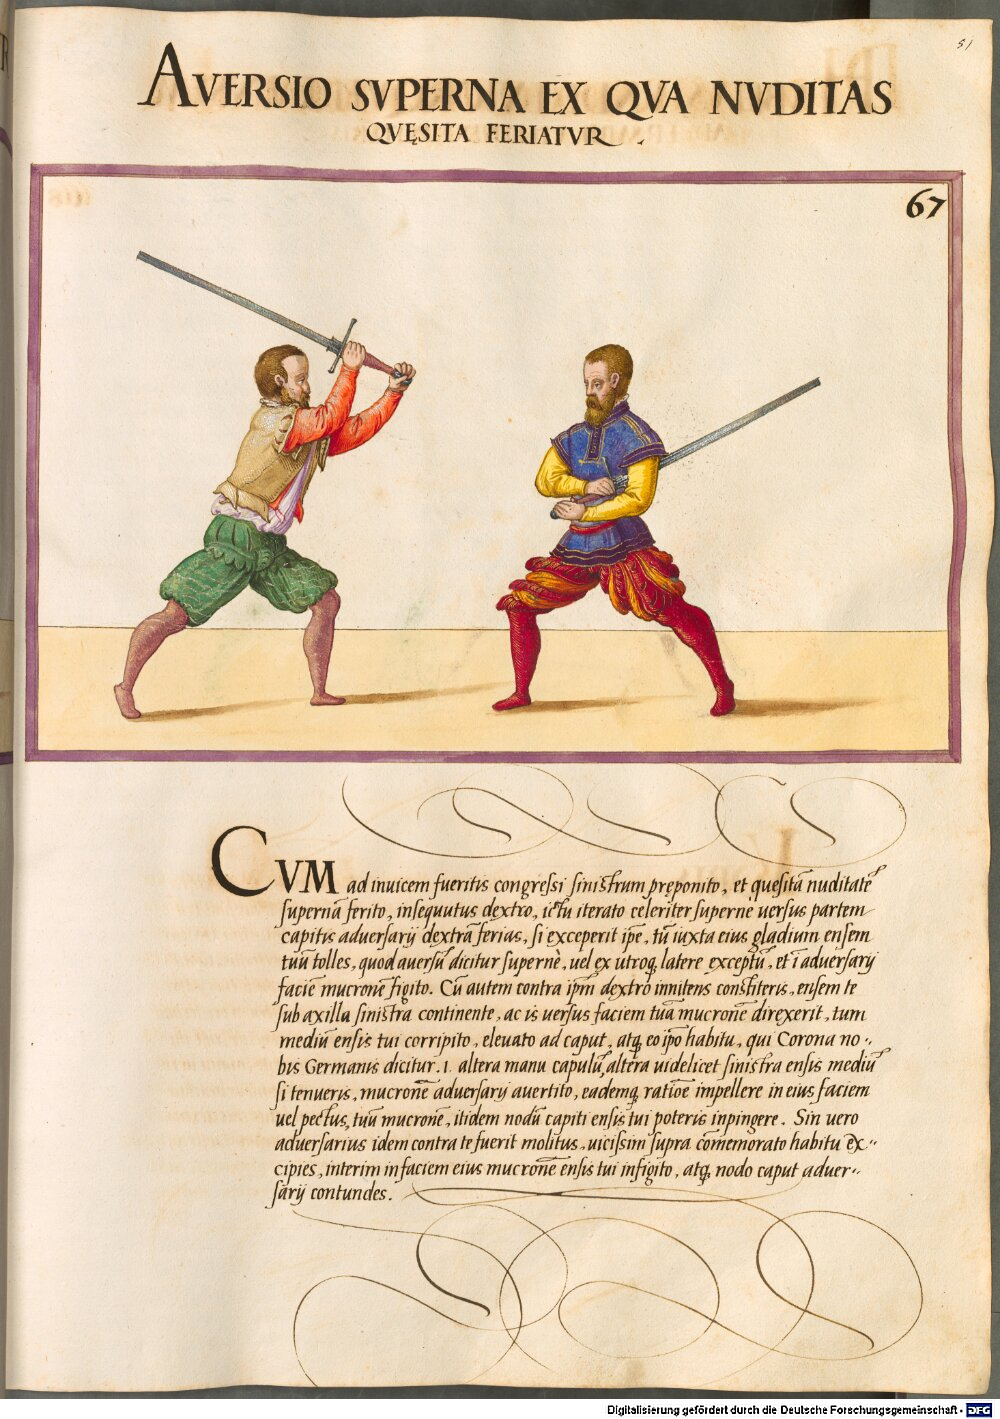 51
AVERSIO SVPERNA EX QVA NVDITAS
QVĘSITA FERIATVR.
67
CVM ad inuicem fueritis congressi sinistrum preponito, et quesitā nuditatē
supernā ferito, insequutus dextro, ictu iterato celeriter supernè uersus partem
capitis aduersarij dextrā ferias, si exceperit ipse, tū iuxta eius gladium ensem
tuū tolles, quod auersū dicitur supernè, uel ex utroq, latere exceptū, et ī aduersarij
facie mucronē figito. Cū autem contra ipm̄ dextro innitens constiteris, ensem te
sub axilla sinistra continente, ac is uersus faciem tuā mucronē direxerit, tum
mediū ensis tui corripito, eleuato ad caput, atq, eo ipo habitu, qui Corona no-
bis Germanis dicitur .1. altera manu capulū, altera uidelicet sinistra ensis mediū
si tenueris, mucronē aduersarij auertito, eademq, ratioē impellere in eius faciem
uel pectus, tuū mucronē, itidem nodū capiti ensis tui poteris inpingere. Sin uero
aduersarius idem contra te fuerit molitus, uicissim supra cōmemorato habitu ex-
cipies, interim in faciem eius mucronē ensis tui infigito, atq, nodo caput aduer-
sarij contundes.
Digitalisierung gefördert durch die Deutsche Forschungsgemeinschaft - DFG